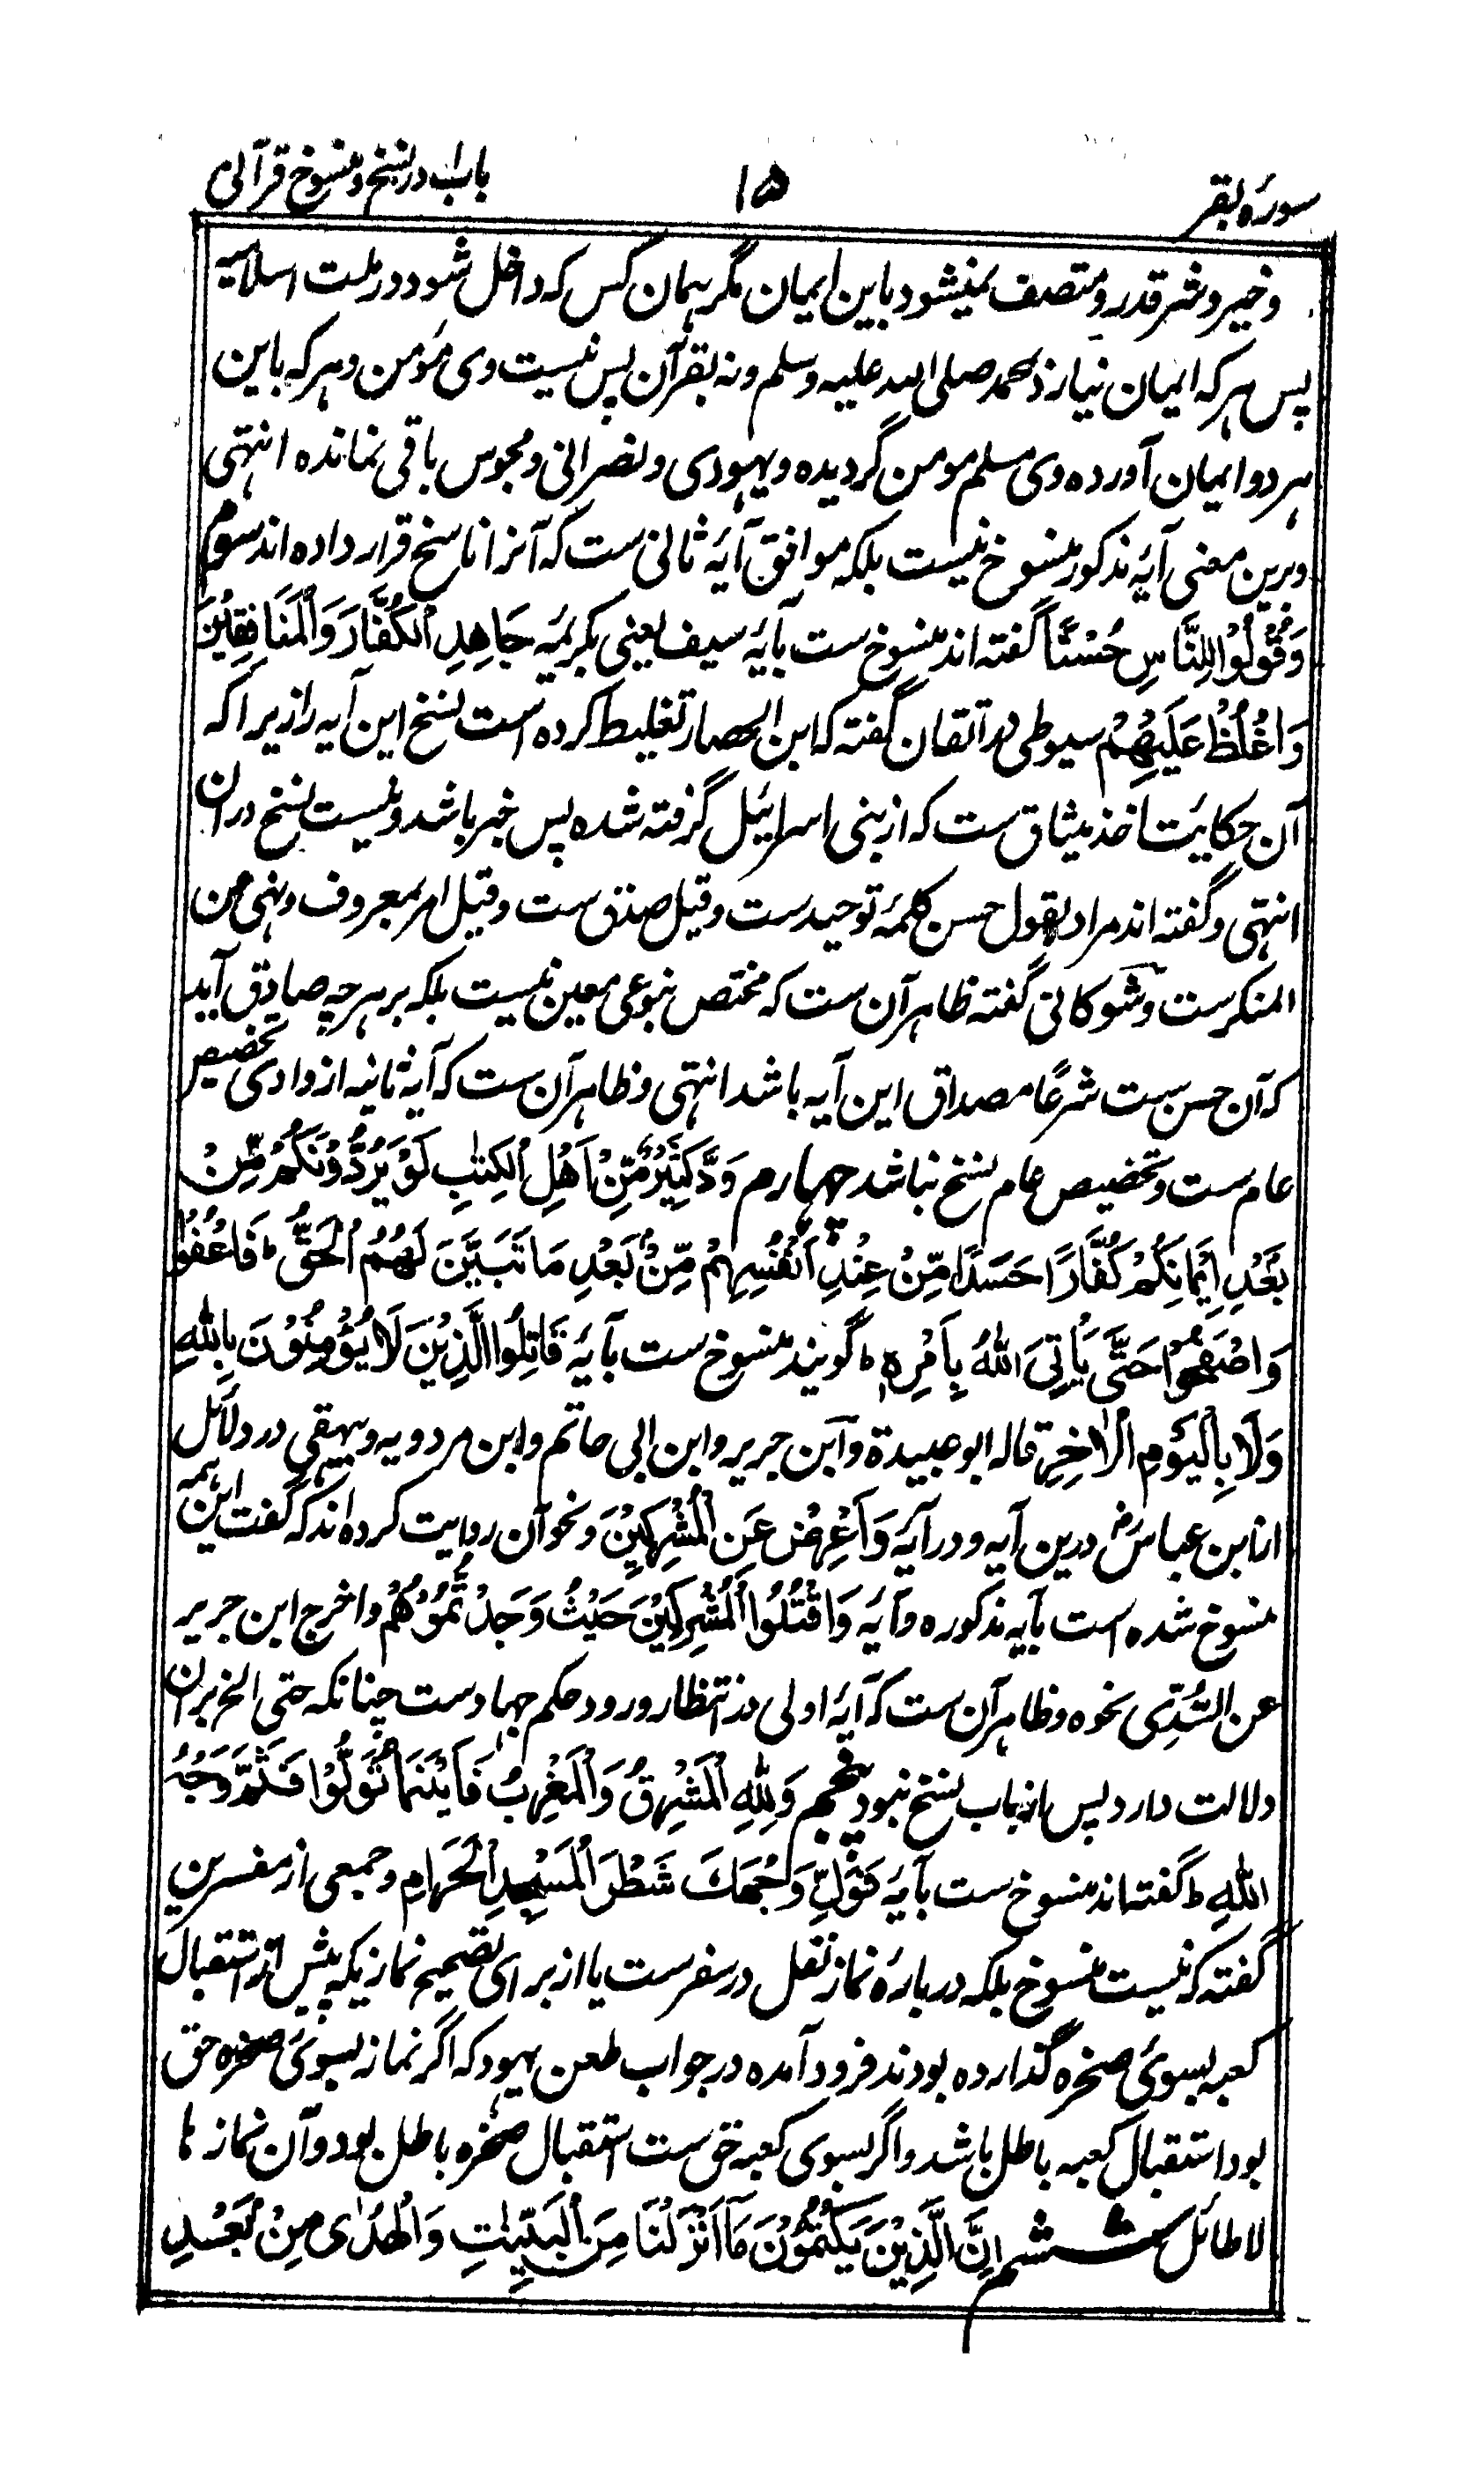 سورۂ بقر
۱۵
باب اول در نسخ و منسوخ قرآنی
و خیر و شر قدر و متصف نمیشود باین ایمان مگر همان کس که داخل شود در ملت اسلامیه
پس هر که ایمان نیارد بمحمد صلی الله علیه وسلم و نه بقرآن پس نیست وی مؤمن و هر که باین
هر دو ایمان آورده وی مسلم مومن گردیده و یهودی و نصرانی و مجوس باقی نمانده انتهی
وبرین معنی آیۂ مذکور منسوخ نیست بلکه موافق آیۂ ثانی ست که آنرا ناسخ قرار داده اند سوم
وَقُوْلُوْا لِلنَّاسِ حُسْنًا گفته اند منسوخ ست بآیۂ سیف یعنی بکریمۂ جَاهِدِ الْكُفَّارَ وَالْمُنَافِقِيْنَ
وَاغْلُظْ عَلَيْهِمْ سیوطی در اتقان گفته که ابن الحصار تغلیط کرده است نسخ این آیه را زیرا که
آن حکایت اخذ میثاق ست که از بنی اسرائیل گرفته شده پس خبر باشد و نیست نسخ دران
انتهی و گفته اند مراد بقول حسن کلمۂ توحید ست و قیل صدق ست و قیل امر بمعروف و نهی عن
المنکر ست و شوکانی گفته ظاهر آن ست که مختص بنوعی معین نیست بلکه بر هر چه صادق آید
که آن حسن ست شرعًا مصداق این آیه باشد انتهی و ظاهر آن ست که آیۂ ثانیه از وادی تخصیص
عام ست و تخصیص عام نسخ نباشد چهارم وَدَّ كَثِيْرٌ مِّنْ اَهْلِ الْكِتٰبِ لَوْ يَرُدُّوْنَكُمْ مِّنْ
بَعْدِ اِيْمَانِكُمْ كُفَّارًا حَسَدًا مِّنْ عِنْدِ اَنْفُسِهِمْ مِّنْ بَعْدِ مَا تَبَيَّنَ لَهُمُ الْحَقُّ ط فَاعْفُوْا
وَاصْفَحُوْا حَتّٰى يَأْتِىَ اللّٰهُ بِاَمْرِهٖ ط گویند منسوخ ست بآیۂ قَاتِلُوا الَّذِيْنَ لَا يُؤْمِنُوْنَ بِاللّٰهِ
وَلَا بِالْيَوْمِ الْاٰخِرِ قاله ابو عبیدة و ابن جریر و ابن ابی حاتم و ابن مردویه و بیهقی در دلائل
از ابن عباس رض درین آیه و در آیۂ وَاَعْرِضْ عَنِ الْمُشْرِكِيْنَ و نحو آن روایت کرده اند که گفت این همه
منسوخ شده است بآیه مذکوره و آیۂ وَاقْتُلُوا الْمُشْرِكِيْنَ حَيْثُ وَجَدْتُّمُوْهُمْ و اخرج ابن جریر
عن السُّدِّی نحوه و ظاهر آن ست که آیۂ اولی در انتظار ورود حکم جهاد ست چنانکه حتی الخ بران
دلالت دارد پس از باب نسخ نبود پنجم وَلِلّٰهِ الْمَشْرِقُ وَالْمَغْرِبُ فَاَيْنَمَا تُوَلُّوْا فَثَمَّ وَجْهُ
اللّٰهِ ط گفته اند منسوخ ست بآیۂ فَوَلِّ وَجْهَكَ شَطْرَ الْمَسْجِدِ الْحَرَامِ و جمعی از مفسرین
گفته که نیست منسوخ بلکه در بارۂ نماز نفل در سفر ست یا از برای تصحیح نمازیکه پیش از استقبال
کعبه بسوئ صخره گذارده بودند فرود آمده در جواب طعن یهود که اگر نماز بسوئ صخره حق
بود استقبال کعبه باطل باشد و اگر بسوی کعبه حق ست استقبال صخره باطل بود و آن نماز ها
لا طائل ششم اِنَّ الَّذِيْنَ يَكْتُمُوْنَ مَآ اَنْزَلْنَا مِنَ الْبَيِّنٰتِ وَالْهُدٰى مِنْ بَعْدِ